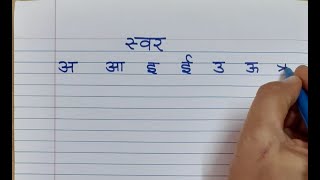 स्वर
अ आ इ ई उ ऊ